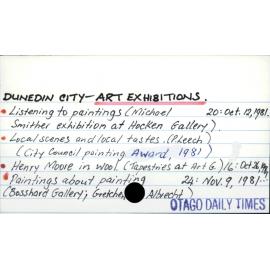 DUNEDIN CITY - ART EXHIBITIONS.
• Listening to paintings (Michael 20: Oct. 12, 1981.
Smither exhibition at Hocken Gallery).
• Local scenes and local tastes. (P. Leech)
(City Council painting Award, 1981)
• Henry Moore in wool (Tapestries at Art G.) 16: Oct 26,
• Paintings about painting 24: Nov. 9, 1981
(Bosshard Gallery; Gretchen Albrecht)
OTAGO DAILY TIMES